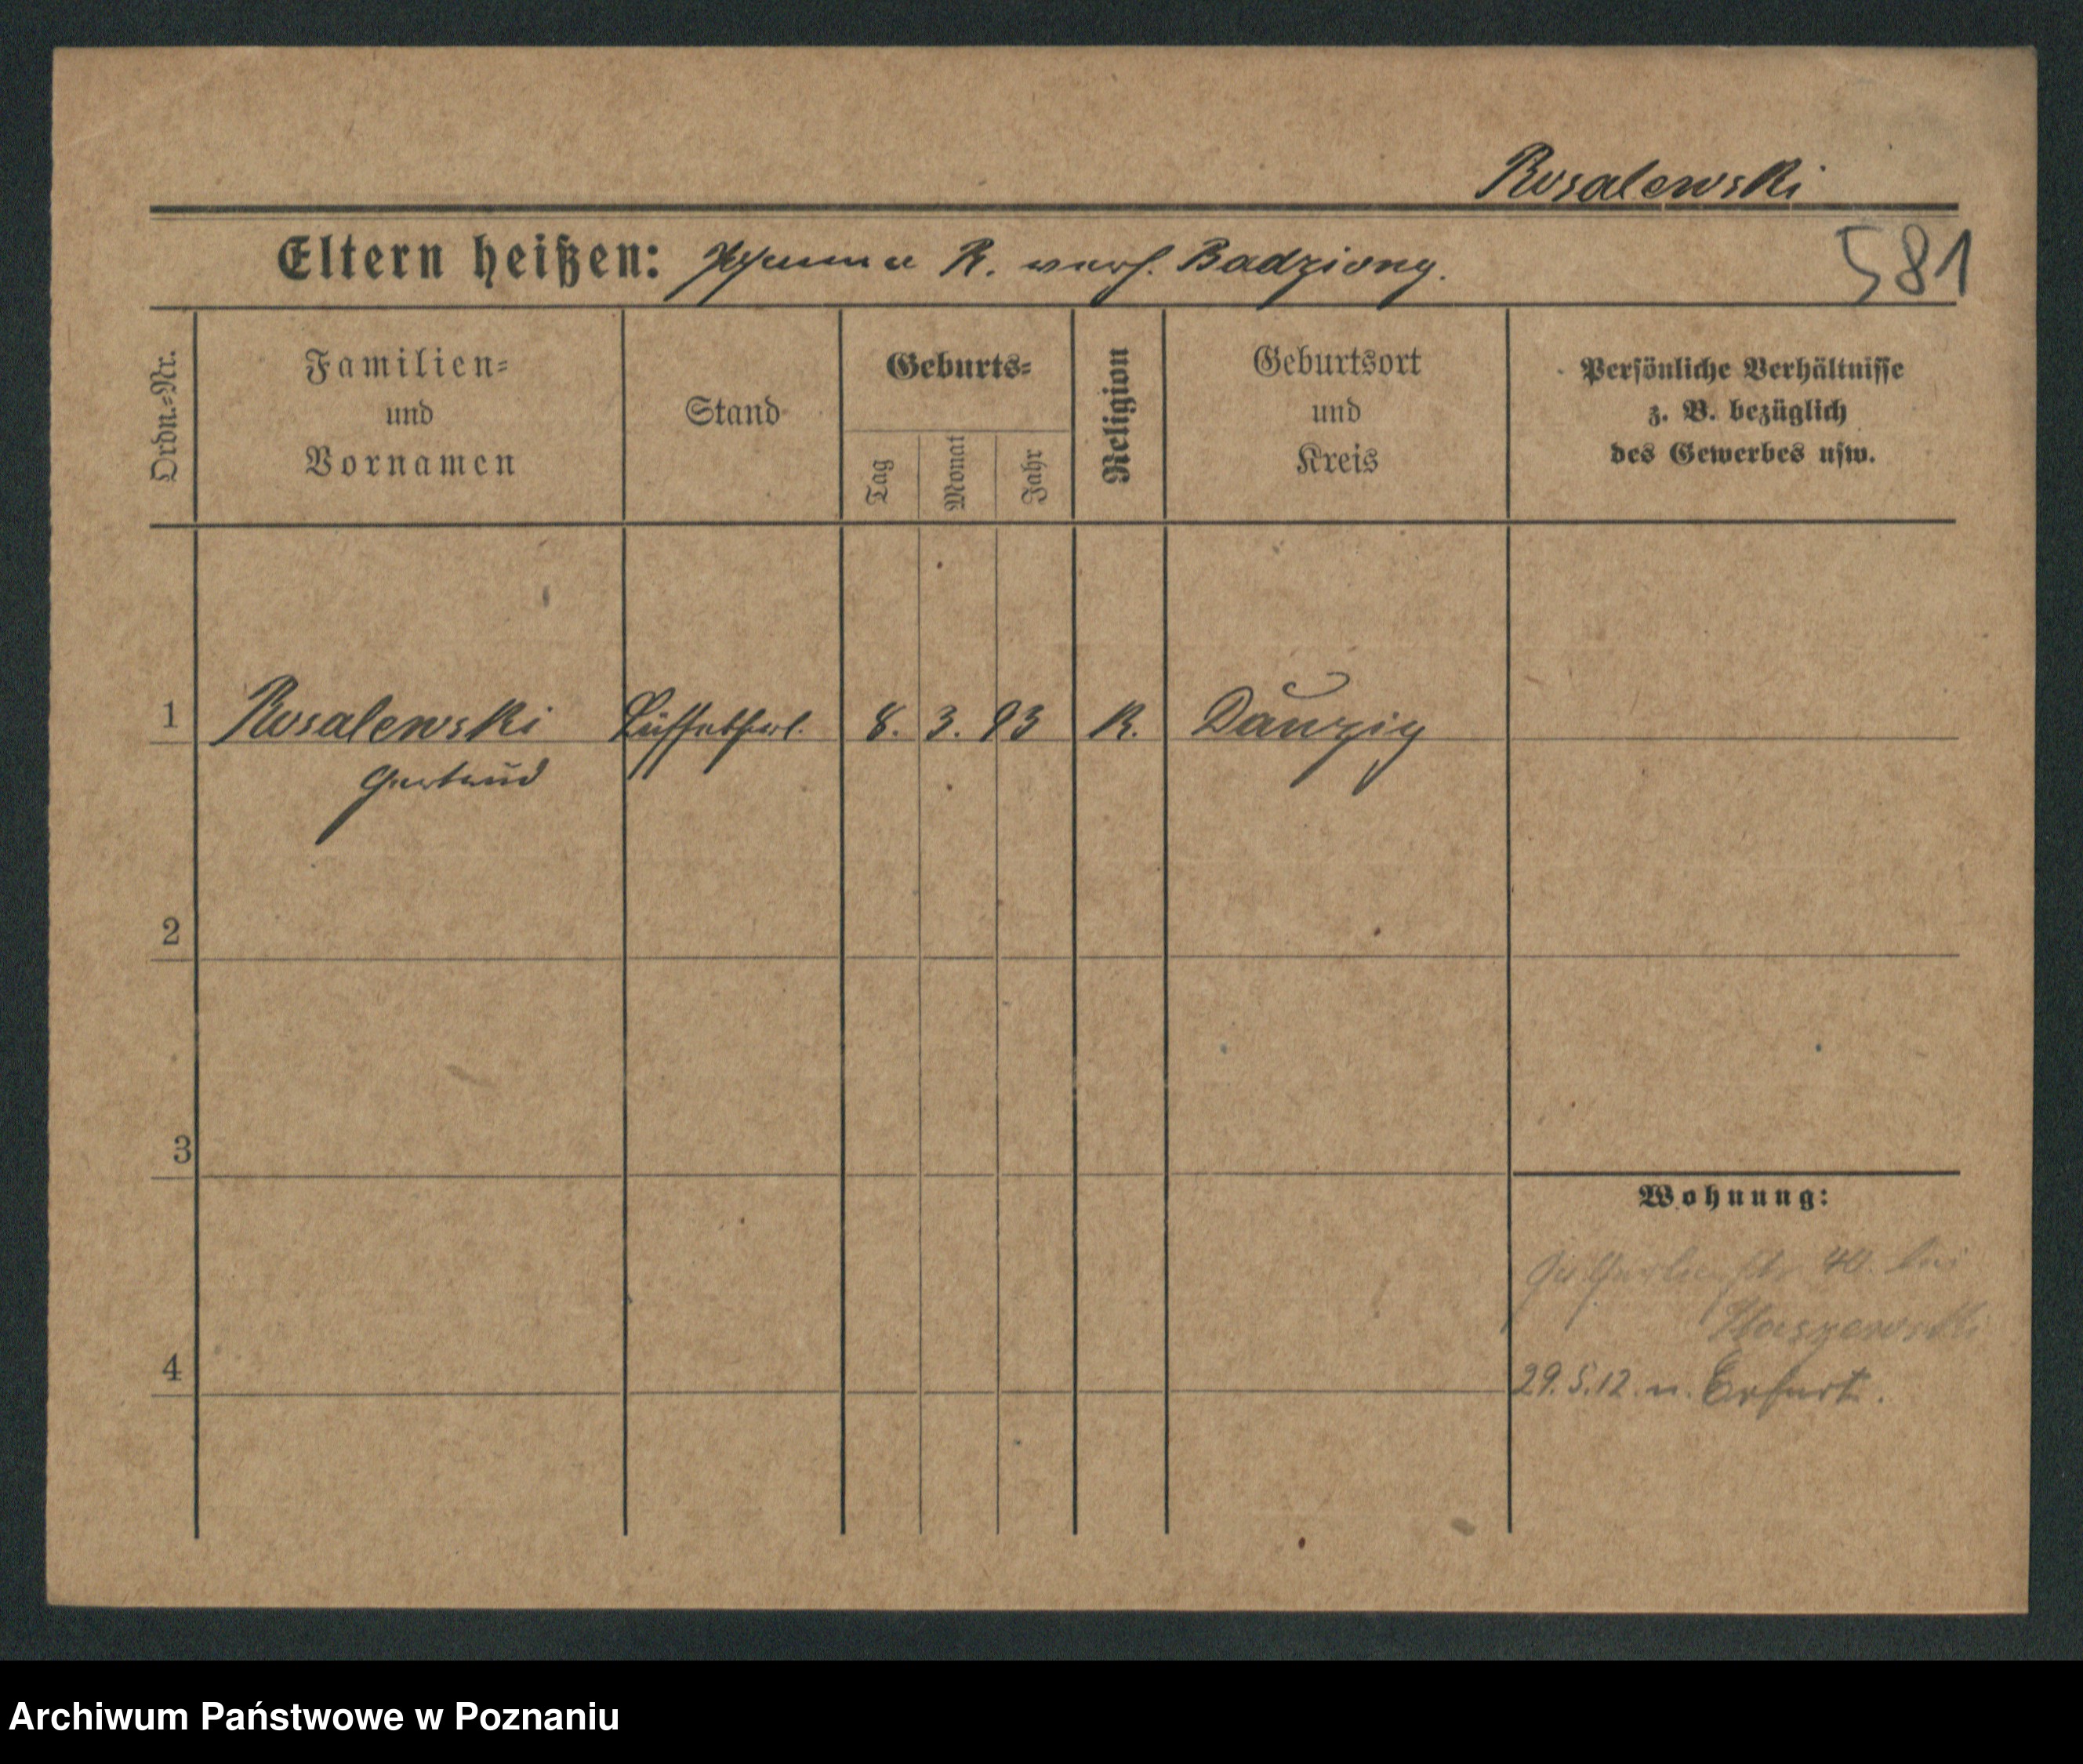 Rosalewski
Eltern heißen: Johanna R. verh. Badziong.
581
Ordn.-Nr.
Familien-
und
Vornamen
Stand
Geburts-
Tag
Monat
Jahr
Religion
Geburtsort
und
Kreis
Persönliche Verhältnisse
z. B. bezüglich
des Gewerbes usw.
1 Rosalewski Büffetfrl. 8. 3. 93 K. Danzig
Gertrud
2
3
Wohnung:
str. 40. bei
4 29.5.12. n. Erfurt.
Archiwum Państwowe w Poznaniu